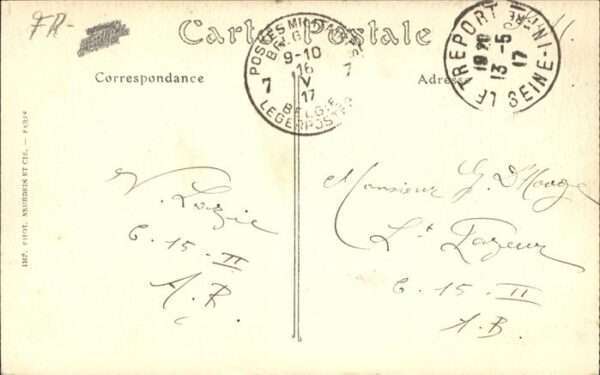 FR-
Carte Postale
Correspondance
Adresse
POSTES MILITAIRES
BELGIQUE
9-10
16
V
17
7 7
BELGIE
LEGERPOSTERIJ
LE TREPORT
SEINE-INFRE
1820
13-5
17
V. Lozie
C-15-II
A.B.
Monsieur G. D'Hooge
Lt Payeur
C-15-II
A.B.
IMP. PHOT. NEURDEIN ET CIE. — PARIS